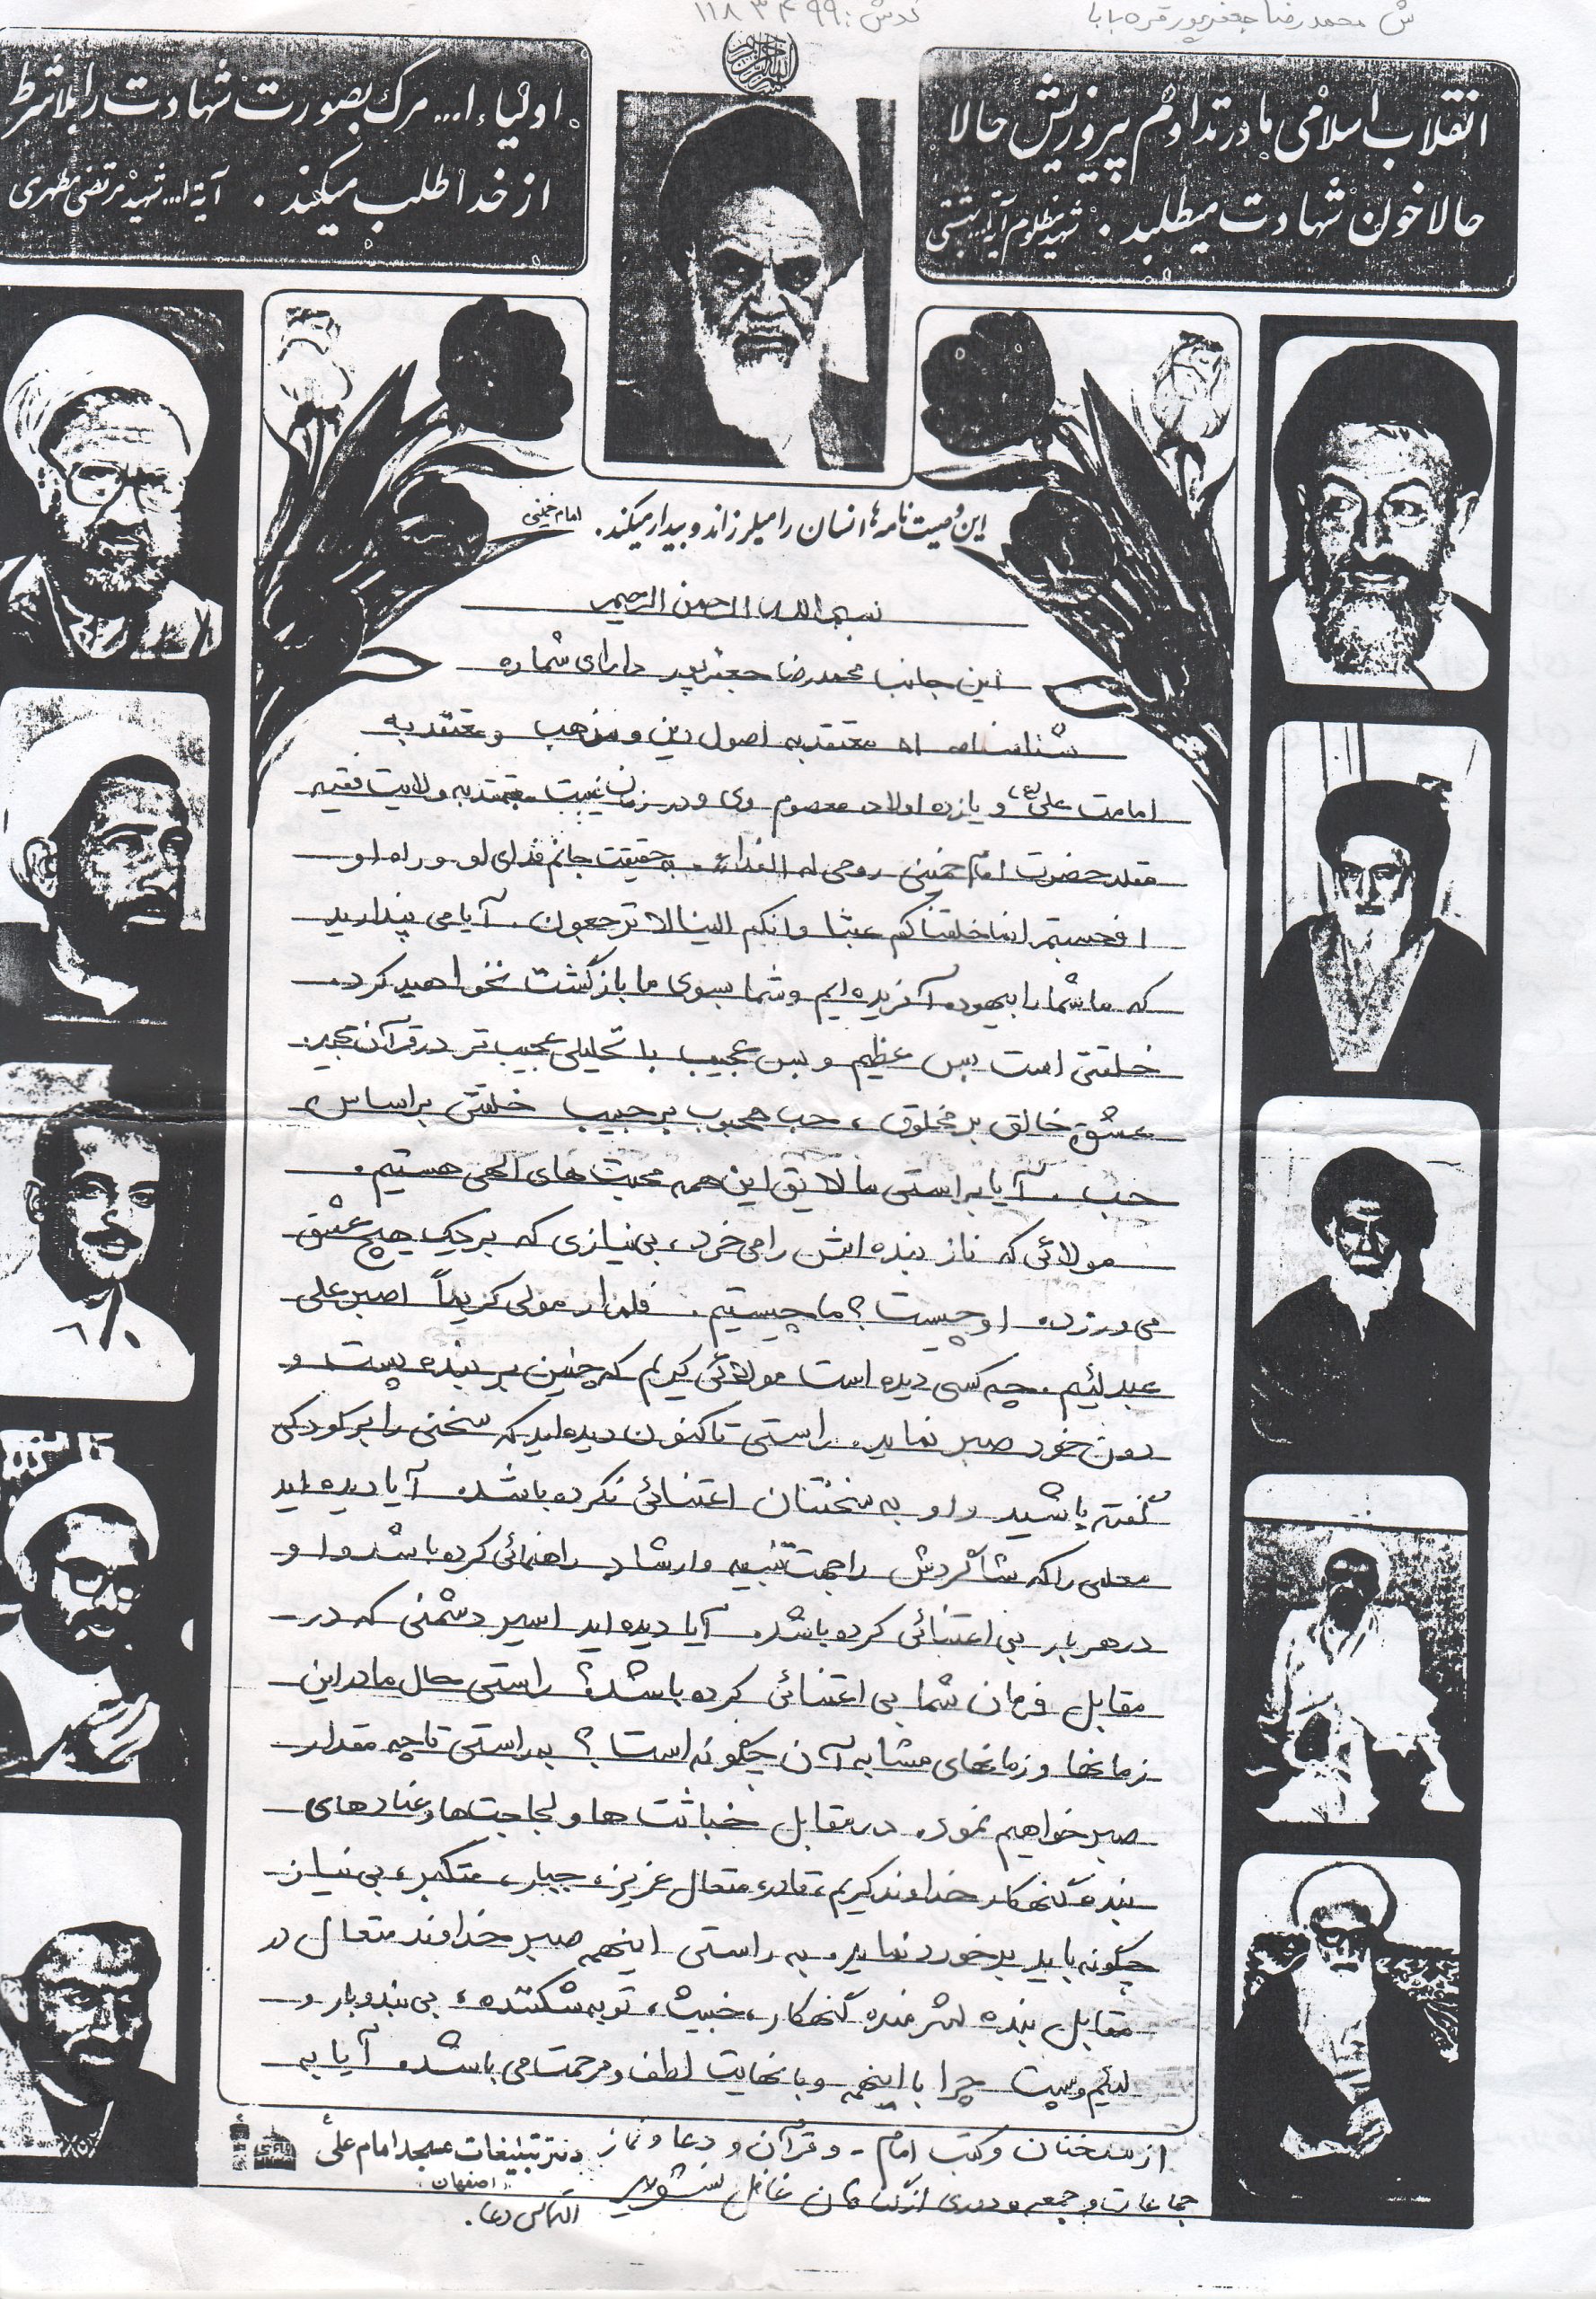 ش محمدرضا جعفرپور قره بابا
کدش: ۱۱۸۳۴۹۹
انقلاب اسلامی ما در تداوم پیروزیش حالا
حالا خون شهادت میطلبد. شهید مظلوم آیة... بهشتی
اولیاء ا... مرگ بصورت شهادت را بلاشرط
از خدا طلب میکنند. آیة ا... شهید مرتضی مطهری
این وصیت نامه ها انسان را میلرزاند و بیدار میکند. امام خمینی
بسم الله الرحمن الرحیم
این جانب محمدرضا جعفرپور دارای شماره
شناسنامه معتقد به اصول دین و مذهب و معتقد به
امامت علی (ع) و یازده اولاد معصوم وی و در زمان غیبت معتقد به ولایت فقیه
مقلد حضرت امام خمینی روحی له الفداء. به حقیقت جانم فدای او و راه او
افحسبتم انما خلقناکم عبثا و انکم الینا لا ترجعون. آیا می پندارید
که ما شما را بیهوده آفریده ایم و شما بسوی ما بازگشت نخواهید کرد.
خلقتی است بس عظیم و بس عجیب با تحلیلی عجیب تر در قرآن مجید.
عشق خالق بر مخلوق، حب محبوب بر حبیب خلقتی بر اساس
حب. آیا براستی ما لایق این همه محبت های الهی هستیم.
مولائی که ناز بنده اش را می خرد، بی نیازی که بر یک هیچ عشق
می ورزد. او چیست؟ ما چیستیم. فلم ار مولی کریماً اصبر علی
عبد لئیم. چه کسی دیده است مولائی کریم که چنین بر بنده پست و
دون خود صبر نماید. راستی تاکنون دیده اید که سخنی را بر کودکی
گفته باشید و او به سخنتان اعتنائی نکرده باشد. آیا دیده اید
معلمی را که شاگردش را جهت تنبیه و ارشاد راهنمائی کرده باشد و او
در هر بار بی اعتنائی کرده باشد. آیا دیده اید اسیر دشمنی که در
مقابل فرمان شما بی اعتنائی کرده باشد؟ راستی حال ما در این
زمانها و زمانهای مشابه آن چگونه است؟ به راستی تا چه مقدار
صبر خواهیم نمود. در مقابل خباثت ها و لجاجت ها و عنادهای
بنده گنهکار خداوند کریم، قادر، متعال عزیز، جبار، متکبر، بی نیاز
چگونه باید برخورد نماید. به راستی اینهمه صبر خداوند متعال در
مقابل بنده شرمنده گنهکار، خبیث، توبه شکننده، بی بندوبار و
لئیم و پست چرا با اینهمه و با نهایت لطف و مرحمت می باشد. آیا به
از سخنان و کتب امام - و قرآن و دعا و نماز
جماعات و جمعه و دوری از گناهان غافل نشوید
التماس دعا.
دفتر تبلیغات مسجد امام علی
اصفهان